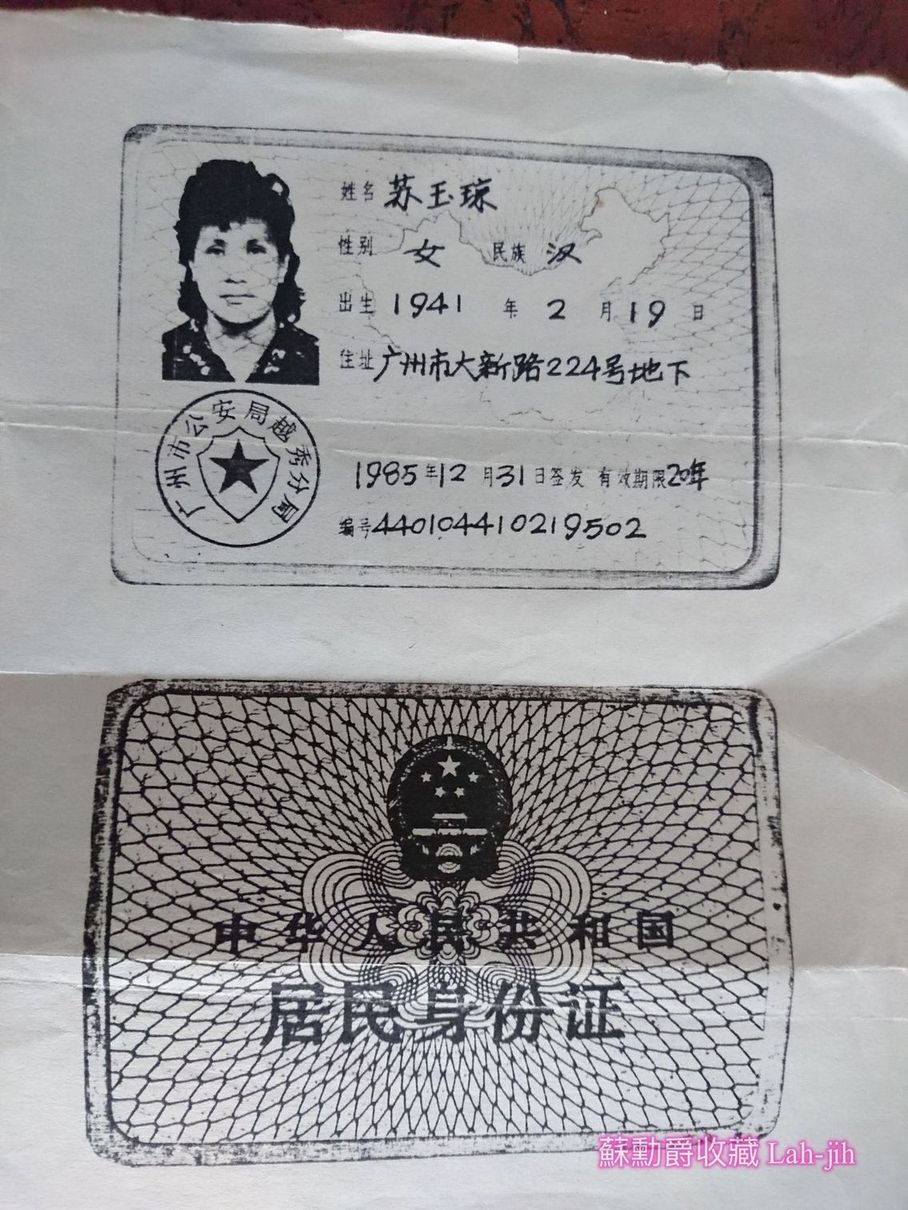 姓名 苏玉琼
性别 女 民族 汉
出生 1941 年 2 月 19 日
住址 广州市大新路224号地下
广州市公安局越秀分局
1985年12月31日签发 有效期限20年
编号 440104410219502
中华人民共和国
居民身份证
蘇勳爵收藏 Lah-jih